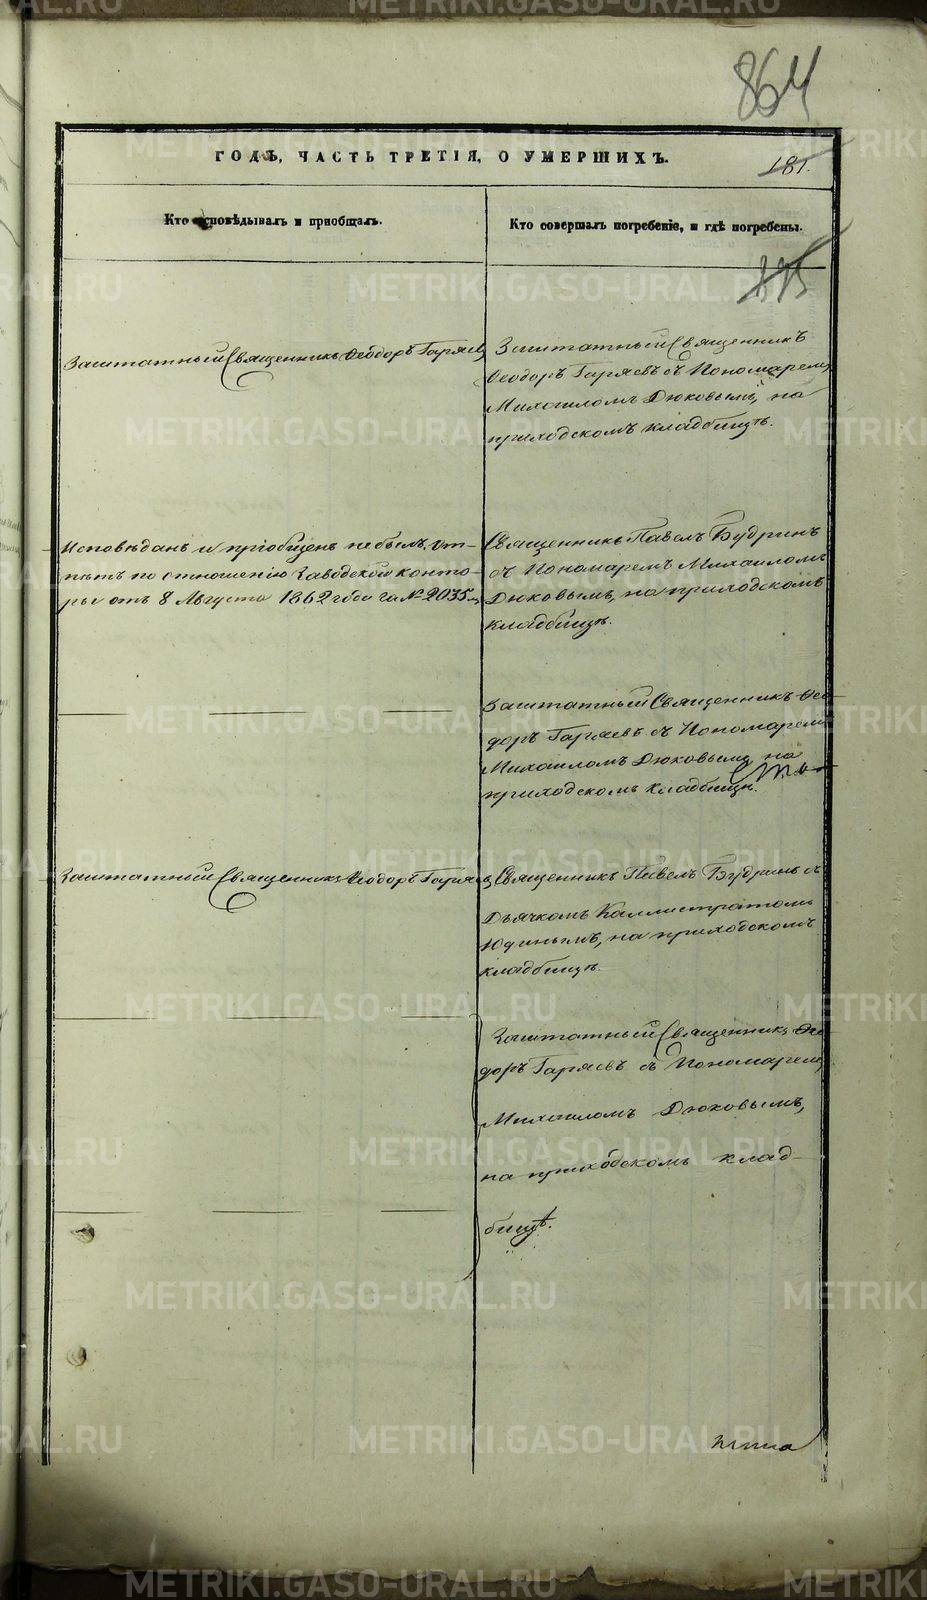 864
ГОДЪ, ЧАСТЬ ТРЕТІЯ, О УМЕРШИХЪ.
181.
Кто исповѣдывалъ и приобщалъ.
Кто совершалъ погребеніе, и гдѣ погребены.
Заштатный Священникъ Ѳеодоръ Гаряевъ
Заштатный Священникъ
Ѳеодоръ Гаряевъ съ Пономаремъ
Михаиломъ Дюковымъ, на
приходскомъ кладбищѣ.
Исповѣданъ и приобщенъ не былъ, от-
пѣтъ по отношенію Заводской конто-
ры отъ 8 Августа 1862 года за № 2035м
Священникъ Павелъ Будринъ
съ Пономаремъ Михаиломъ
Дюковымъ, на приходскомъ
кладбищѣ.
Заштатный Священникъ Ѳео-
доръ Гаряевъ съ Пономаремъ
Михаиломъ Дюковымъ на
приходскомъ кладбищѣ.
Заштатный Священникъ Ѳеодоръ Гаряевъ
Священникъ Павелъ Будринъ съ
Дьячкомъ Каллистратомъ
Юдинымъ, на приходскомъ
кладбищѣ.
Заштатный Священникъ Ѳео-
доръ Гаряевъ съ Пономаремъ
Михаиломъ Дюковымъ,
на приходскомъ клад-
бищѣ.
METRIKI.GASO-URAL.RU